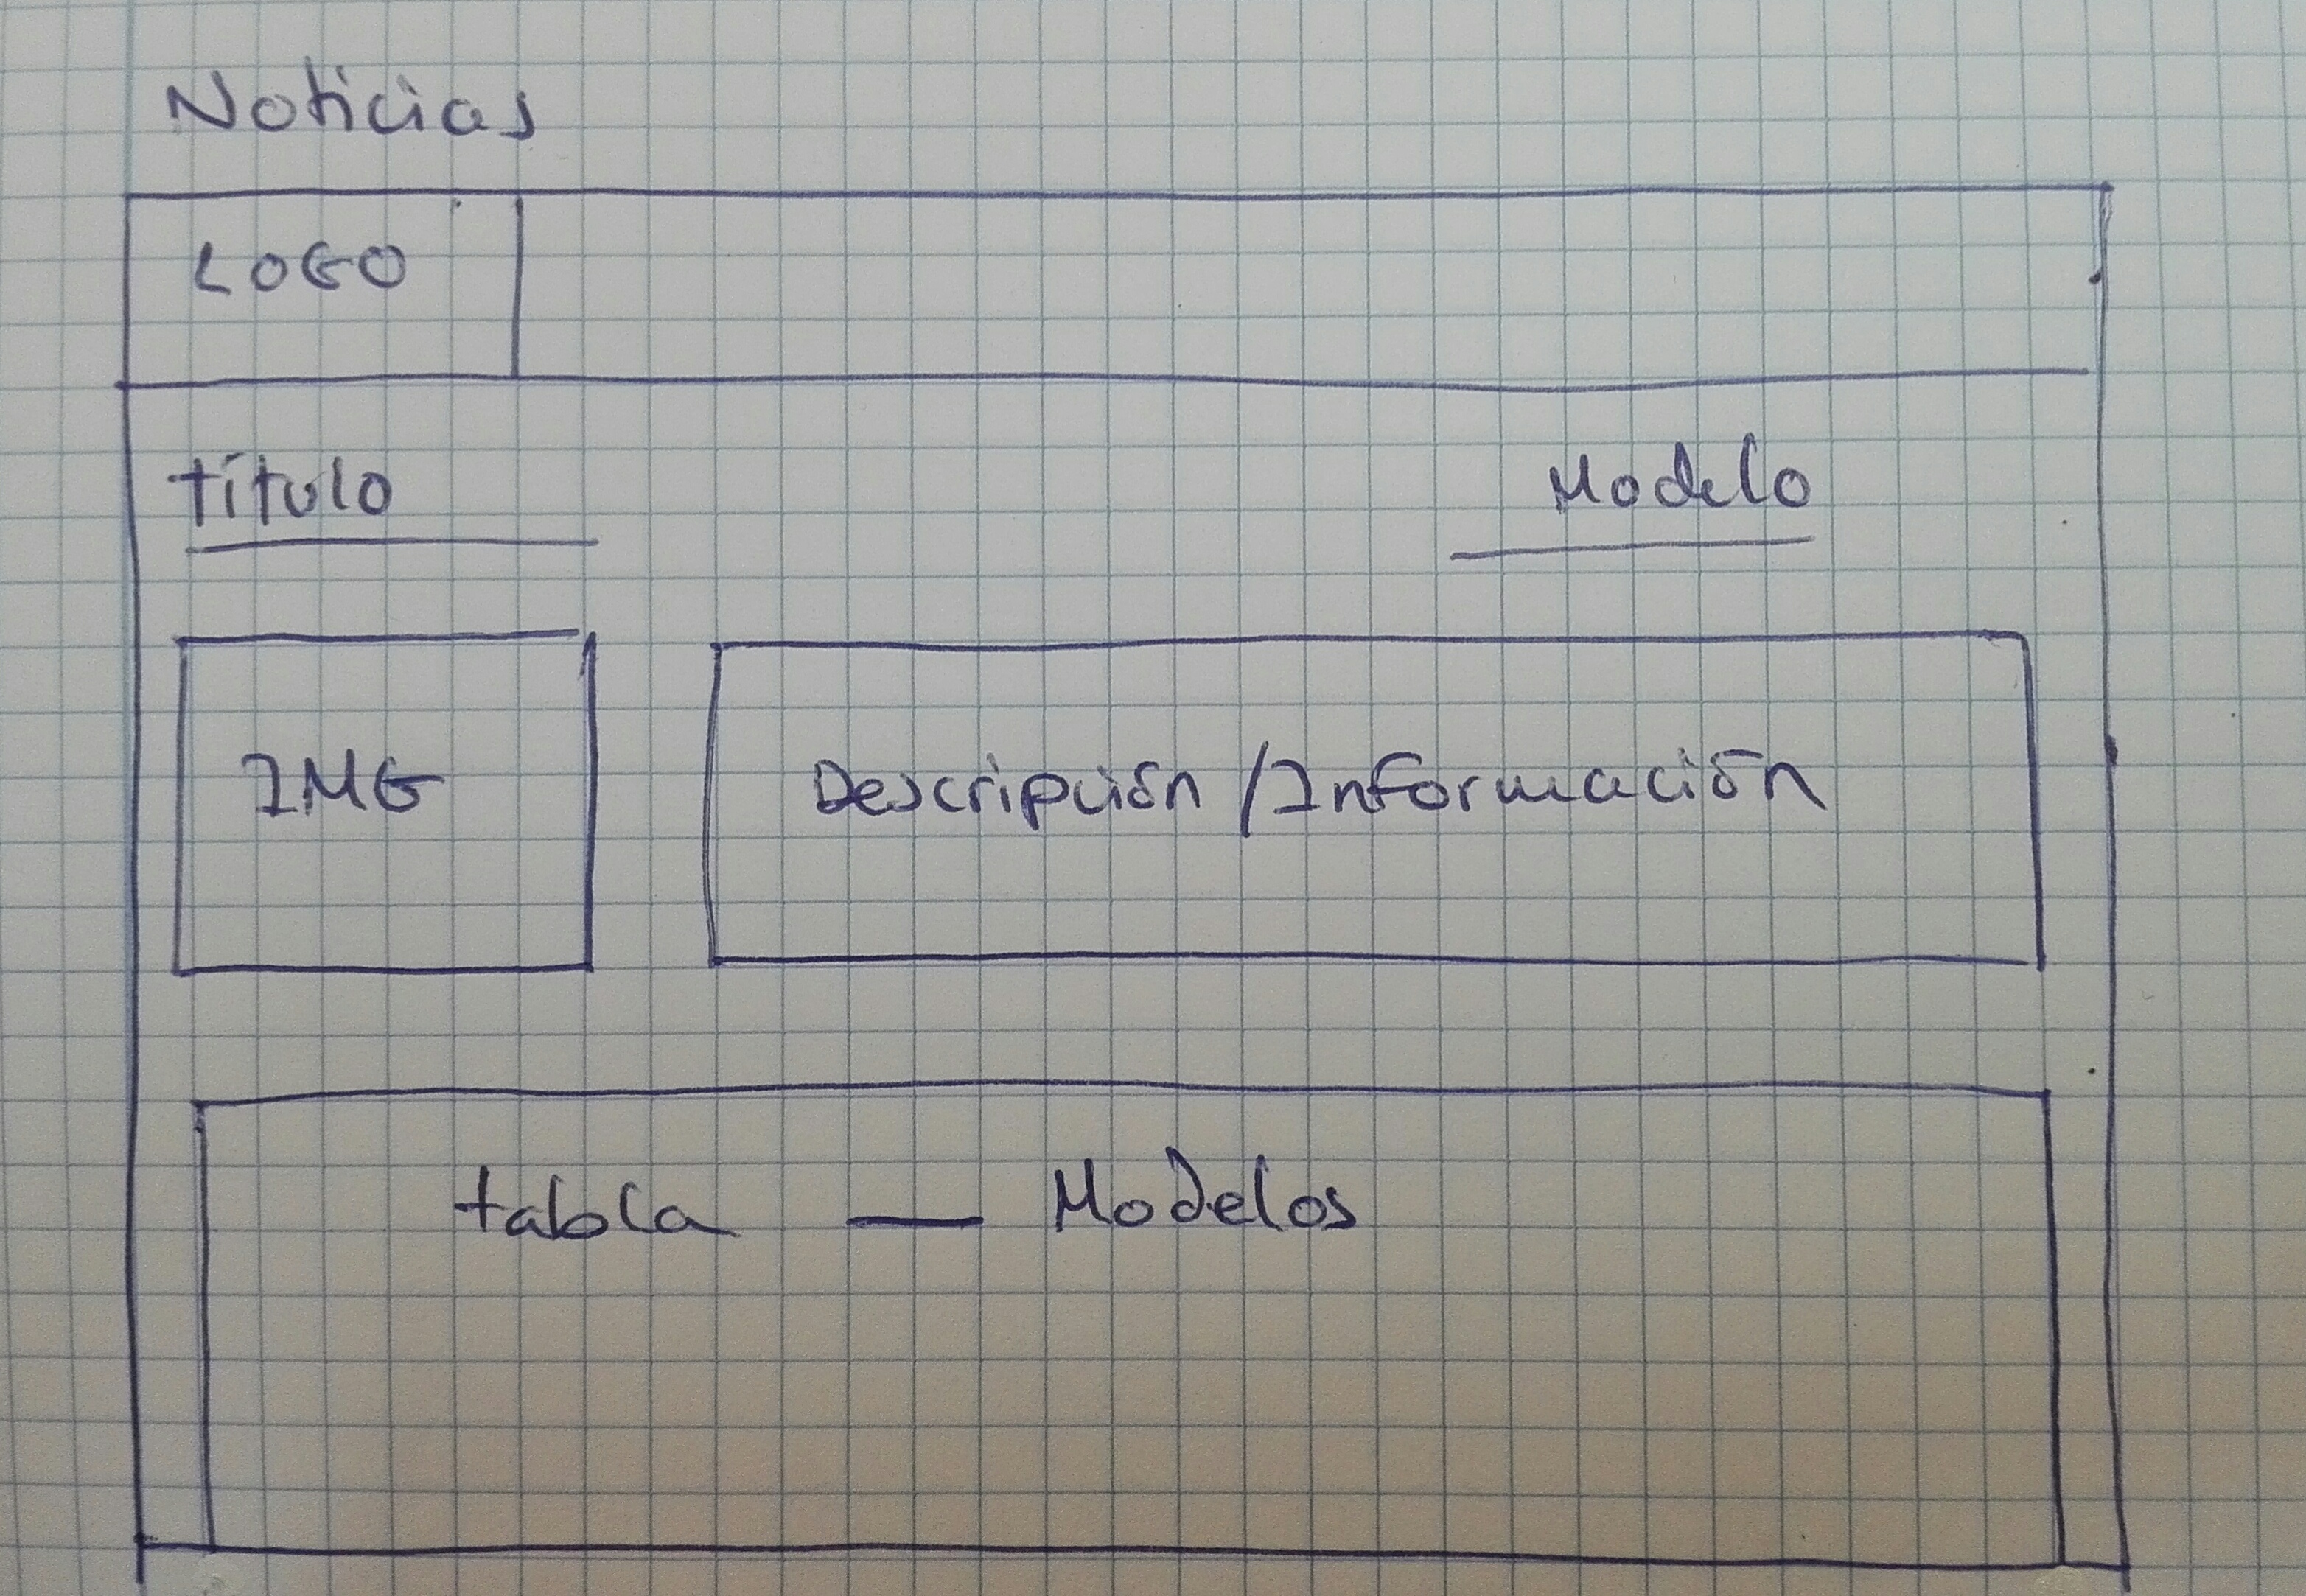 Noticias
LOGO
título Modelo
IMG Descripción / Información
tabla — Modelos